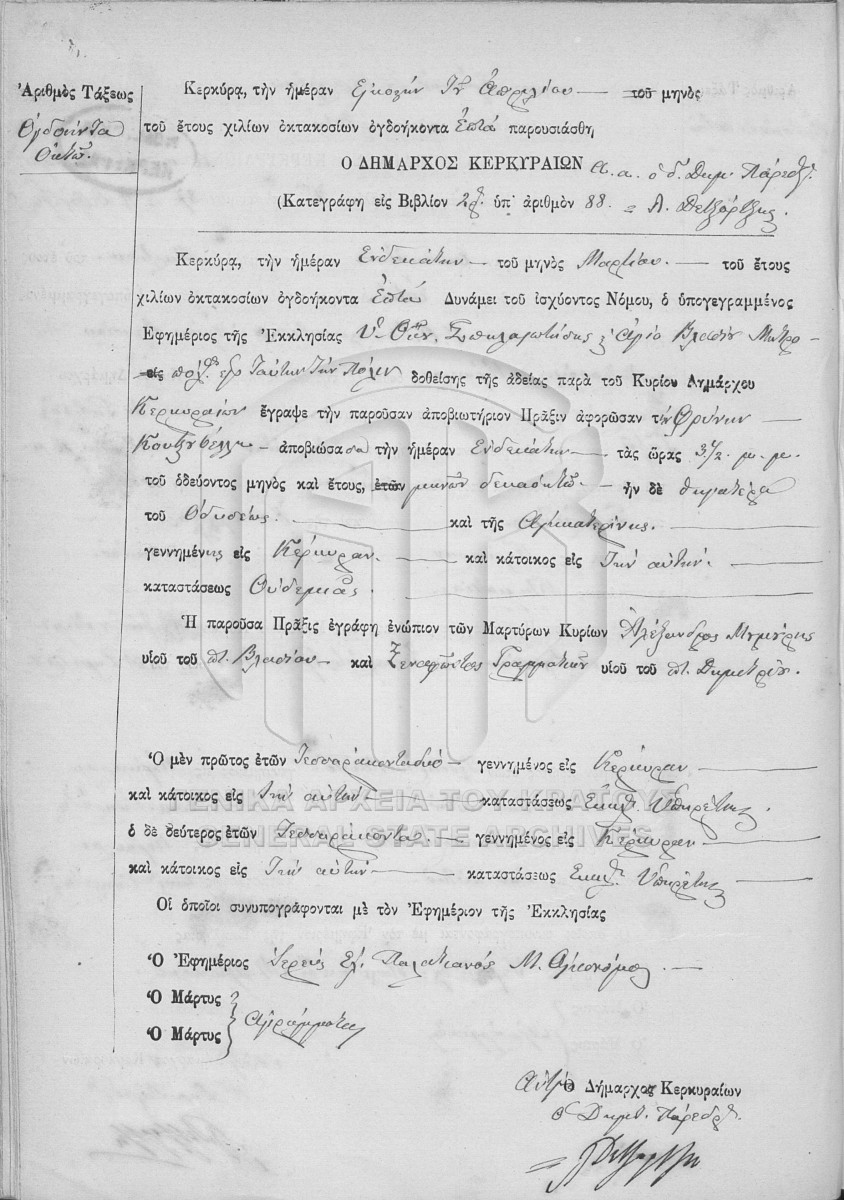 Ἀριθμὸς Τάξεως
Ὀγδοήντα
Ὀκτώ.
Κερκύρα, τὴν ἡμέραν Εἰκοστὴν Ἀπριλίου τοῦ μηνὸς
τοῦ ἔτους χιλίων ὀκτακοσίων ὀγδοήκοντα Ἑπτά παρουσιάσθη
Ο ΔΗΜΑΡΧΟΣ ΚΕΡΚΥΡΑΙΩΝ α. α. ὁ δ. Δημ. Πάρεδρ.
(Κατεγράφη εἰς Βιβλίον 2 ὑπ' ἀριθμὸν 88.
Κερκύρᾳ, τὴν ἡμέραν Ἑνδεκάτην τοῦ μηνὸς Μαρτίου. τοῦ ἔτους
χιλίων ὀκτακοσίων ὀγδοήκοντα Ἑπτά Δυνάμει τοῦ ἰσχύοντος Νόμου, ὁ ὑπογεγραμμένος
Ἐφημέριος τῆς Ἐκκλησίας Σπηλαιωτίσης Ἁγίο Βλασίου Μητρο
εἰς πολ. Ταύτην Τὴν Πόλιν δοθείσης τῆς ἀδείας παρὰ τοῦ Κυρίου Δημάρχου
Κερκυραίων ἔγραψε τὴν παροῦσαν ἀποβιωτήριον Πρᾶξιν ἀφορῶσαν τὴν Φρύνην
ἀποβιώσασα τὴν ἡμέραν Ἑνδεκάτην τὰς ὥρας 3 1/2 μ. μ.
τοῦ ὁδεύοντος μηνὸς καὶ ἔτους, ἐτῶν μηνῶν δεκαόκτω ἦν δὲ θηγατέρα
τοῦ Ὀδυσέως. καὶ τῆς Αἰκατερίνης.
γεννημένης εἰς Κέρκυραν. καὶ κάτοικος εἰς Τὴν αὐτήν.
καταστάσεως Οὐδεμιᾶς.
Ἡ παροῦσα Πρᾶξις ἐγράφη ἐνώπιον τῶν Μαρτύρων Κυρίων Ἀλέξανδρος
υἱοῦ τοῦ πτ. Βλασίου καὶ Ξενοφῶντος Γραμματικὸν υἱοῦ τοῦ πτ. Δημετρίου.
Ὁ μὲν πρῶτος ἐτῶν Τεσσαράκονταδυό γεννημένος εἰς Κέρκυραν
καὶ κάτοικος εἰς Τὴν αὐτὴν καταστάσεως Ἐκκλ. Ὑπηρέτης.
ὁ δὲ δεύτερος ἐτῶν Τεσσαράκοντα. γεννημένος εἰς Κέρκυραν
καὶ κάτοικος εἰς Τὴν αὐτὴν καταστάσεως Ἐκκλ. Ὑπηρέτης
Οἱ ὁποῖοι συνυπογράφονται μὲ τὸν Ἐφημέριον τῆς Ἐκκλησίας
Ὁ Ἐφημέριος Ἱερεὺς Παλατιανός Μ. Οἰκονόμος.
Ὁ Μάρτυς
Ὁ Μάρτυς Ἀγράμματοι
Ὁ Δήμαρχος Κερκυραίων
ὁ Δημ. Πάρεδρ.
ΓΕΝΙΚΑ ΑΡΧΕΙΑ ΤΟΥ ΚΡΑΤΟΥΣ
GENERAL STATE ARCHIVES